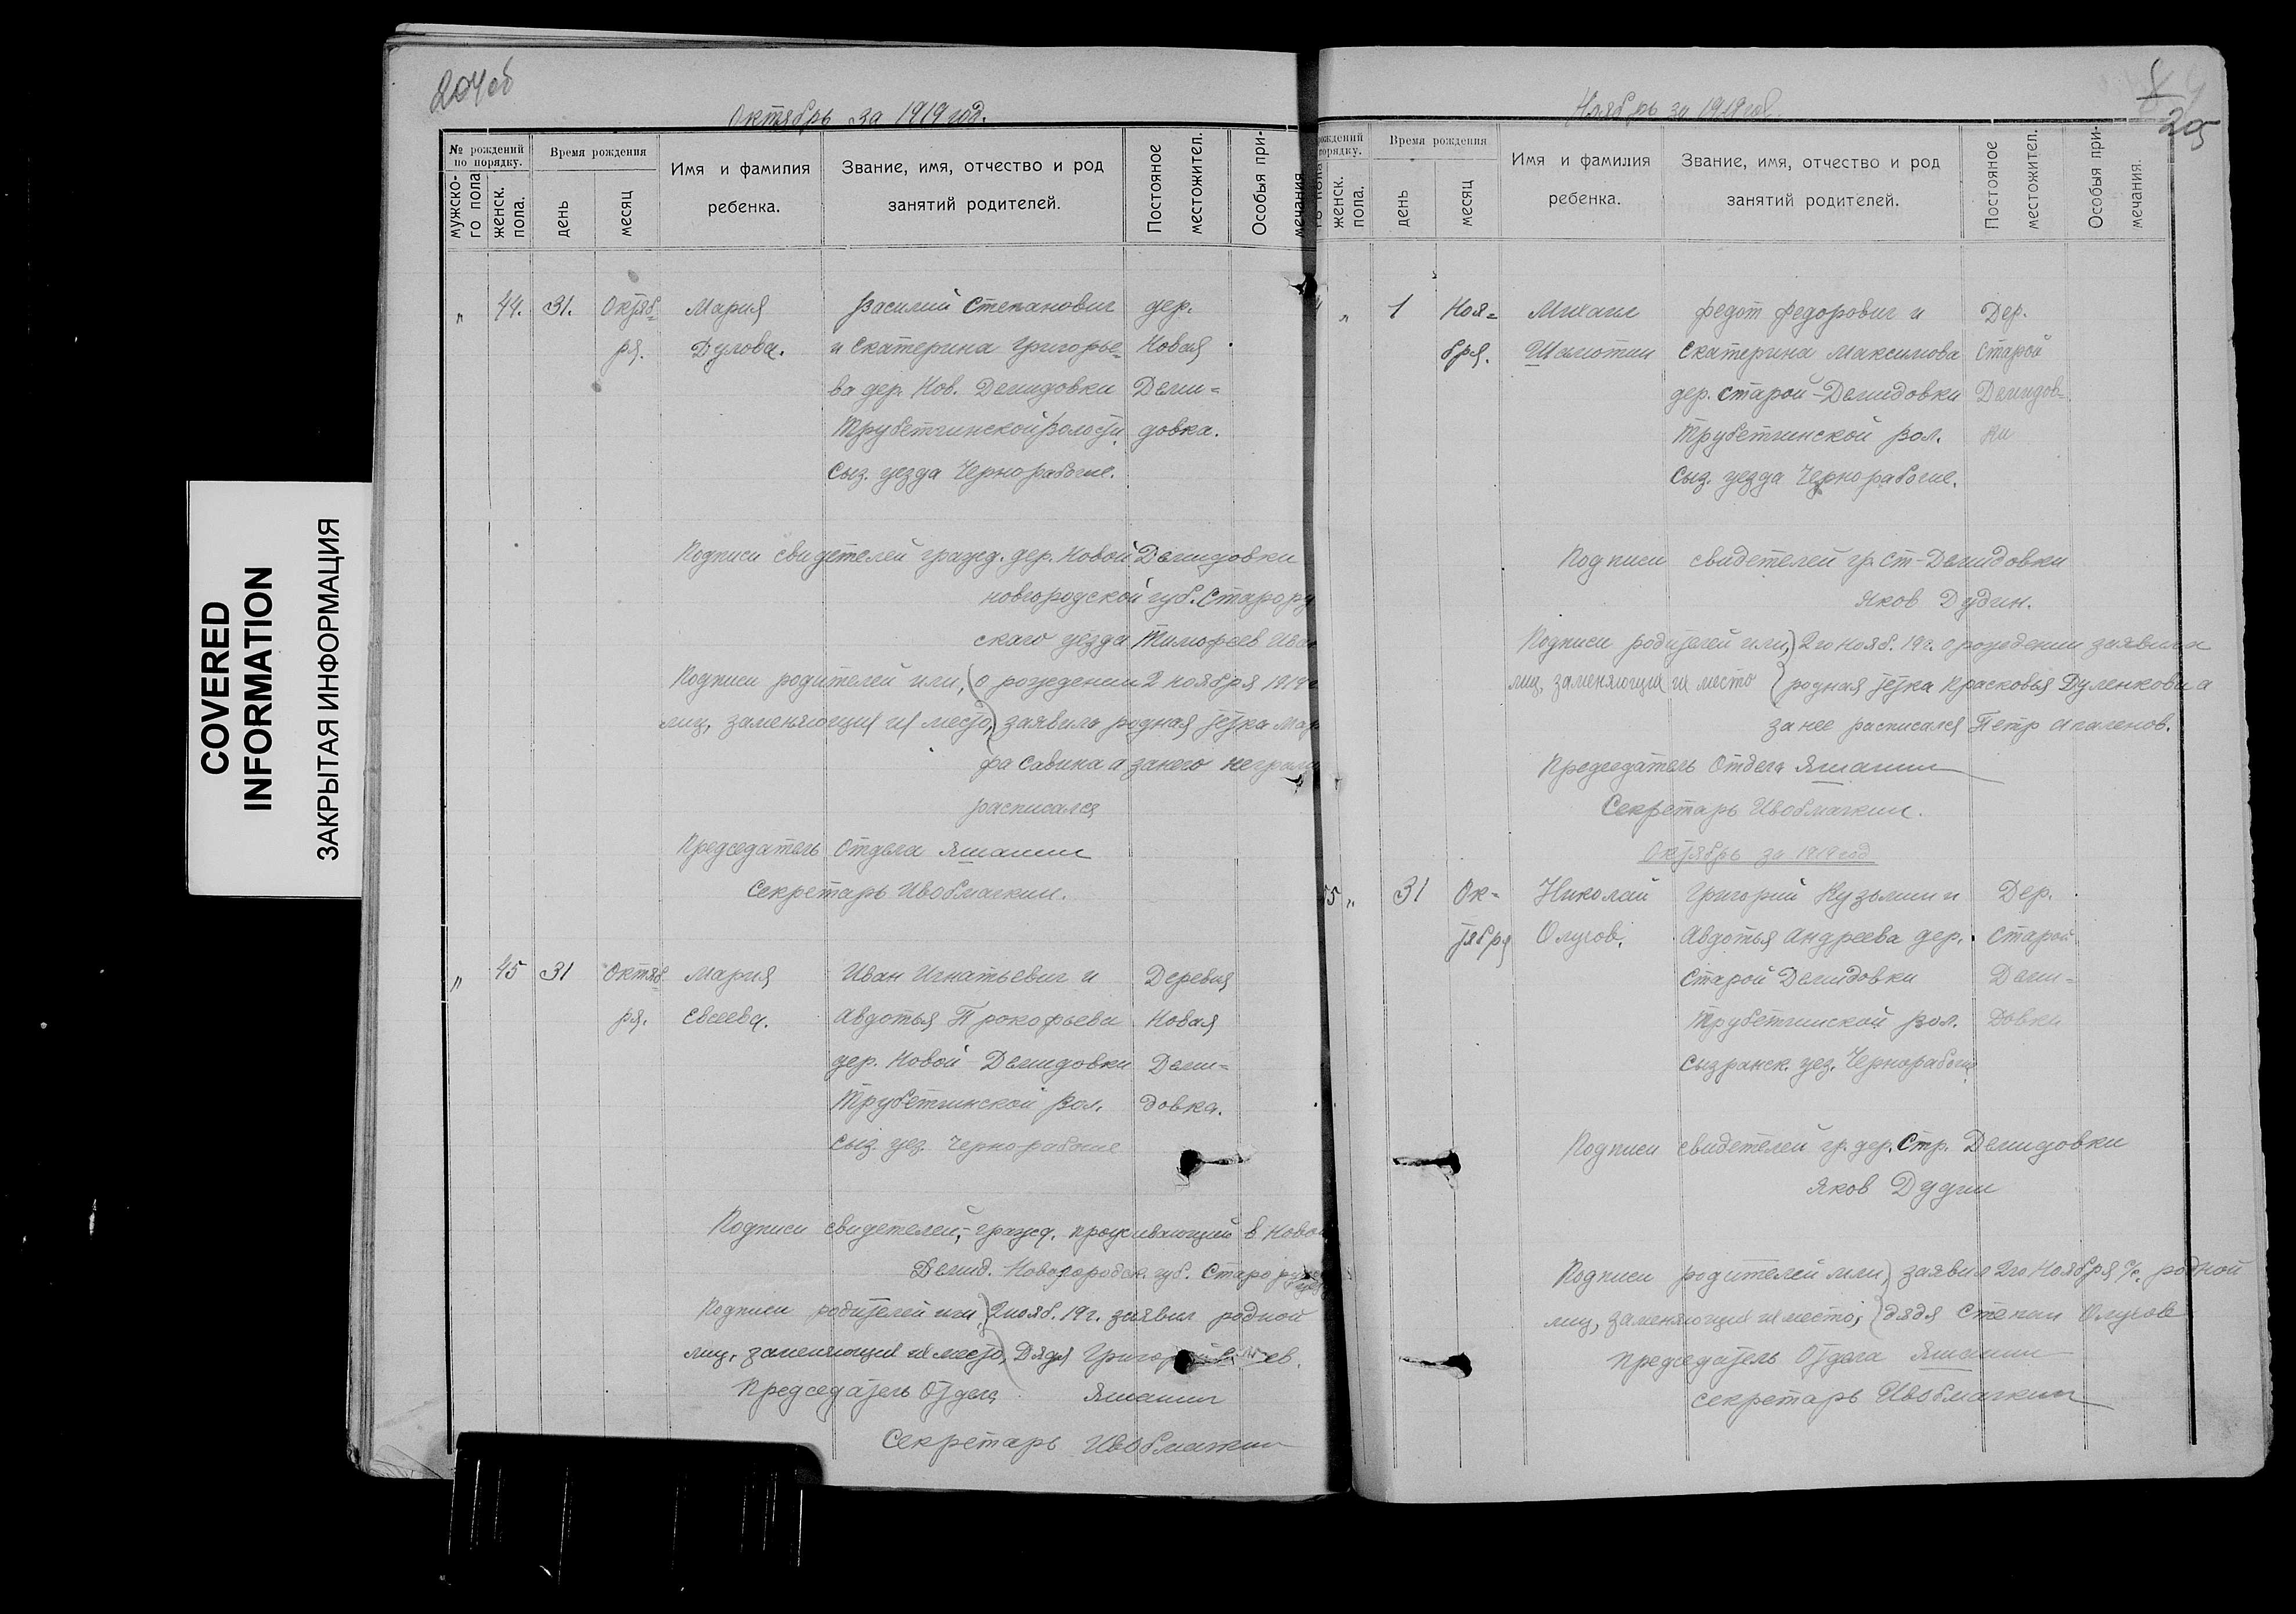 COVERED
INFORMATION
ЗАКРЫТАЯ ИНФОРМАЦИЯ
204об
Октябрь за 1919 год.
№ рождений по порядку.
мужско-го пола
женск. пола.
Время рождения
день
месяц
Имя и фамилия ребенка.
Звание, имя, отчество и род занятий родителей.
Постояное местожител.
Особыя при-мечания
„ 44. 31. Октяб- Мария Василий Степанович дер.
ря. Дулова. и Екатерина Григорье- Новая
ва дер. Нов. Демидовки Деми-
Трубетчинской Волости довка.
Сыз. уезда Чернорабочие.
Подписи свидетелей гражд. дер. Новой Демидовки
новгородской губ. Старору
скаго уезда Тимофеев Иван
Подписи родителей или, о рождении 2 ноября 1919
лиц, заменяющих их место, заявила родная тетка Мар
фа Савина а за него неграм
расписался
Председатель Отдела Яшанин
Секретарь
„ 45 31 Октяб- Мария Иван Игнатьевич и Деревня
ря. Евсеева. Авдотья Прокофьева Новая
дер. Новой Демидовки Деми-
Трубетчинской Вол. довка.
Сыз. уез. Чернорабочие
Подписи свидетелей, гражд. проживающий в Новой
Демид. Новогородск. губ. Старорус
Подписи родителей или 2 нояб. 19 г. заявил родной
лиц, заменяющих их место, Дядя Григорий
Председатель Отдела Яшанин
Секретарь
205
Ноябрь за 1919 год.
рождений порядку.
женск. пола.
Время рождения
день
месяц
Имя и фамилия ребенка.
Звание, имя, отчество и род занятий родителей.
Постояное местожител.
Особыя при-мечания.
„ 1 Ноя- Михаил Федот Федорович и Дер.
бря. Екатерина Максимова Старой
дер. Старой-Демидовки Демидов-
Трубетчинской Вол. ки
Сыз. уезда Чернорабочие.
Подписи свидетелей гр. Ст-Демидовки
Яков Дудин.
Подписи родителей или, 2го Нояб. 19 г. о рождении заявила
лиц, заменяющих их место родная тетка Прасковья Дуленкова а
за нее расписался Петр Апаленов.
Председатель Отдела Яшанин
Секретарь
Октябрь за 1919 год
55 „ 31 Ок- Николай Григорий Кузьмин и Дер.
тября Олугов. Авдотья Андреева дер. Старой
Старой Демидовки Деми-
Трубетчинской Вол. довки
Сызранск. уез. Чернорабочие
Подписи свидетелей гр. дер. Стр. Демидовки
Яков Дудин
Подписи родителей или заявил 2го Ноября с/г. родной
лиц, заменяющих их место, дядя Степан Олугов
Председатель Отдела Яшанин
Секретарь